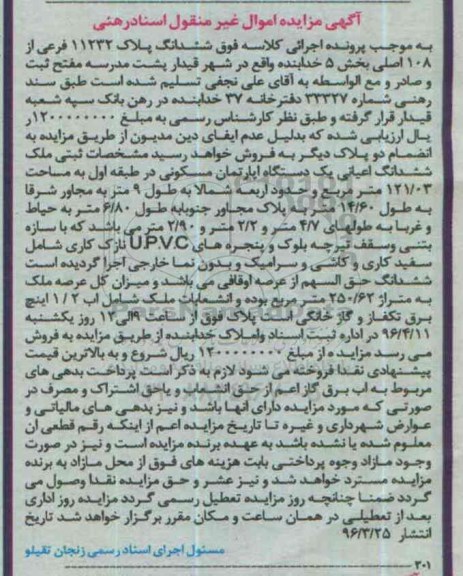 آگهی مزایده اموال غیر منقول اسنادرهنی
به موجب پرونده اجرائی کلاسه فوق ششدانگ پلاک ۱۱۲۳۲ فرعی از
۱۰۸ اصلی بخش ۵ خدابنده واقع در شهر قیدار پشت مدرسه مفتح ثبت
و صادر و مع الواسطه به آقای علی نجفی تسلیم شده است طبق سند
رهنی شماره ۳۳۳۲۷ دفترخانه ۳۷ خدابنده در رهن بانک سپه شعبه
قیدار قرار گرفته و طبق نظر کارشناس رسمی به مبلغ ۱۲۰۰۰۰۰۰۰۰ر
یال ارزیابی شده که بدلیل عدم ایفای دین مدیون از طریق مزایده به
انضمام دو پلاک دیگر به فروش خواهد رسید مشخصات ثبتی ملک
ششدانگ اعیانی یک دستگاه اپارتمان مسکونی در طبقه اول به مساحت
۱۲۱/۰۳ متر مربع و حدود اربعه شمالا به طول ۹ متر به مجاور شرقا
به طول ۱۴/۶۰ متر به پلاک مجاور جنوبابه طول ۶/۸۰ متر به حیاط
و غربا به طولهای ۴/۷ متر و ۲/۲ متر و ۲/۹۰ متر می باشد که با سازه
بتنی وسقف تیرچه بلوک و پنجره های U.P.V.C نازک کاری شامل
سفید کاری و کاشی و سرامیک و بدون نما خارجی اجرا گردیده است
ششدانگ حق السهم از عرصه اوقافی می باشد و میزان کل عرصه ملک
به متراژ ۲۵۰/۶۲ متر مربع بوده و انشعابات ملک شامل اب ۱/۲ اینچ
برق تکفاز و گاز خانگی است پلاک فوق از ساعت ۹الی۱۲ روز یکشنبه
۹۶/۴/۱۱ در اداره ثبت اسناد واملاک خدابنده از طریق مزایده به فروش
می رسد مزایده از مبلغ ۱۲۰۰۰۰۰۰۰۰ ریال شروع و به بالاترین قیمت
پیشنهادی نقدا فروخته می شود لازم به ذکر است پرداخت بدهی های
مربوط به اب برق گاز اعم از حق انشعاب و یاحق اشتراک و مصرف در
صورتی که مورد مزایده دارای آنها باشد و نیز بدهی های مالیاتی و
عوارض شهرداری و غیره تا تاریخ مزایده اعم از اینکه رقم قطعی ان
معلوم شده یا نشده باشد به عهده برنده مزایده است و نیز در صورت
وجود مازاد وجوه پرداختی بابت هزینه های فوق از محل مازاد به برنده
مزایده مسترد خواهد شد و نیز عشر و حق مزایده نقدا وصول می
گردد ضمنا چنانچه روز مزایده تعطیل رسمی گردد مزایده روز اداری
بعد از تعطیلی در همان ساعت و مکان مقرر برگزار خواهد شد تاریخ
انتشار ۹۶/۳/۲۵
مسئول اجرای اسناد رسمی زنجان تقیلو
۳۰۱